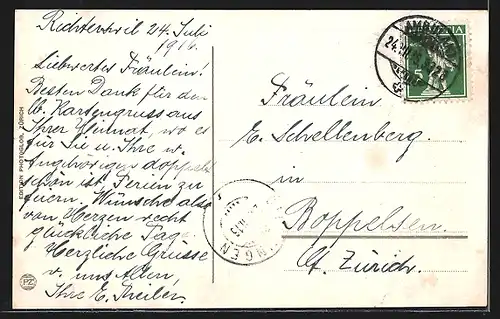 Richterswil 24. Juli
1914.
Liebwertes Fräulein!
Besten Dank für den
lb. Kartengruss aus
Ihrer Heimat, wo es
für Sie u. Ihre w.
Angehörigen doppelt
schön ist Ferien zu
feiern. Wünsche also
von Herzen recht
glückliche Tage.
Herzliche Grüsse
v. uns Allen,
Ihre E. Theiler
Fräulein
E. Schellenberg.
in
Boppelsen.
Ct. Zürich.
EDITION PHOTOGLOB, ZÜRICH
PZ
AMBUL
24.VII
5
NGEN